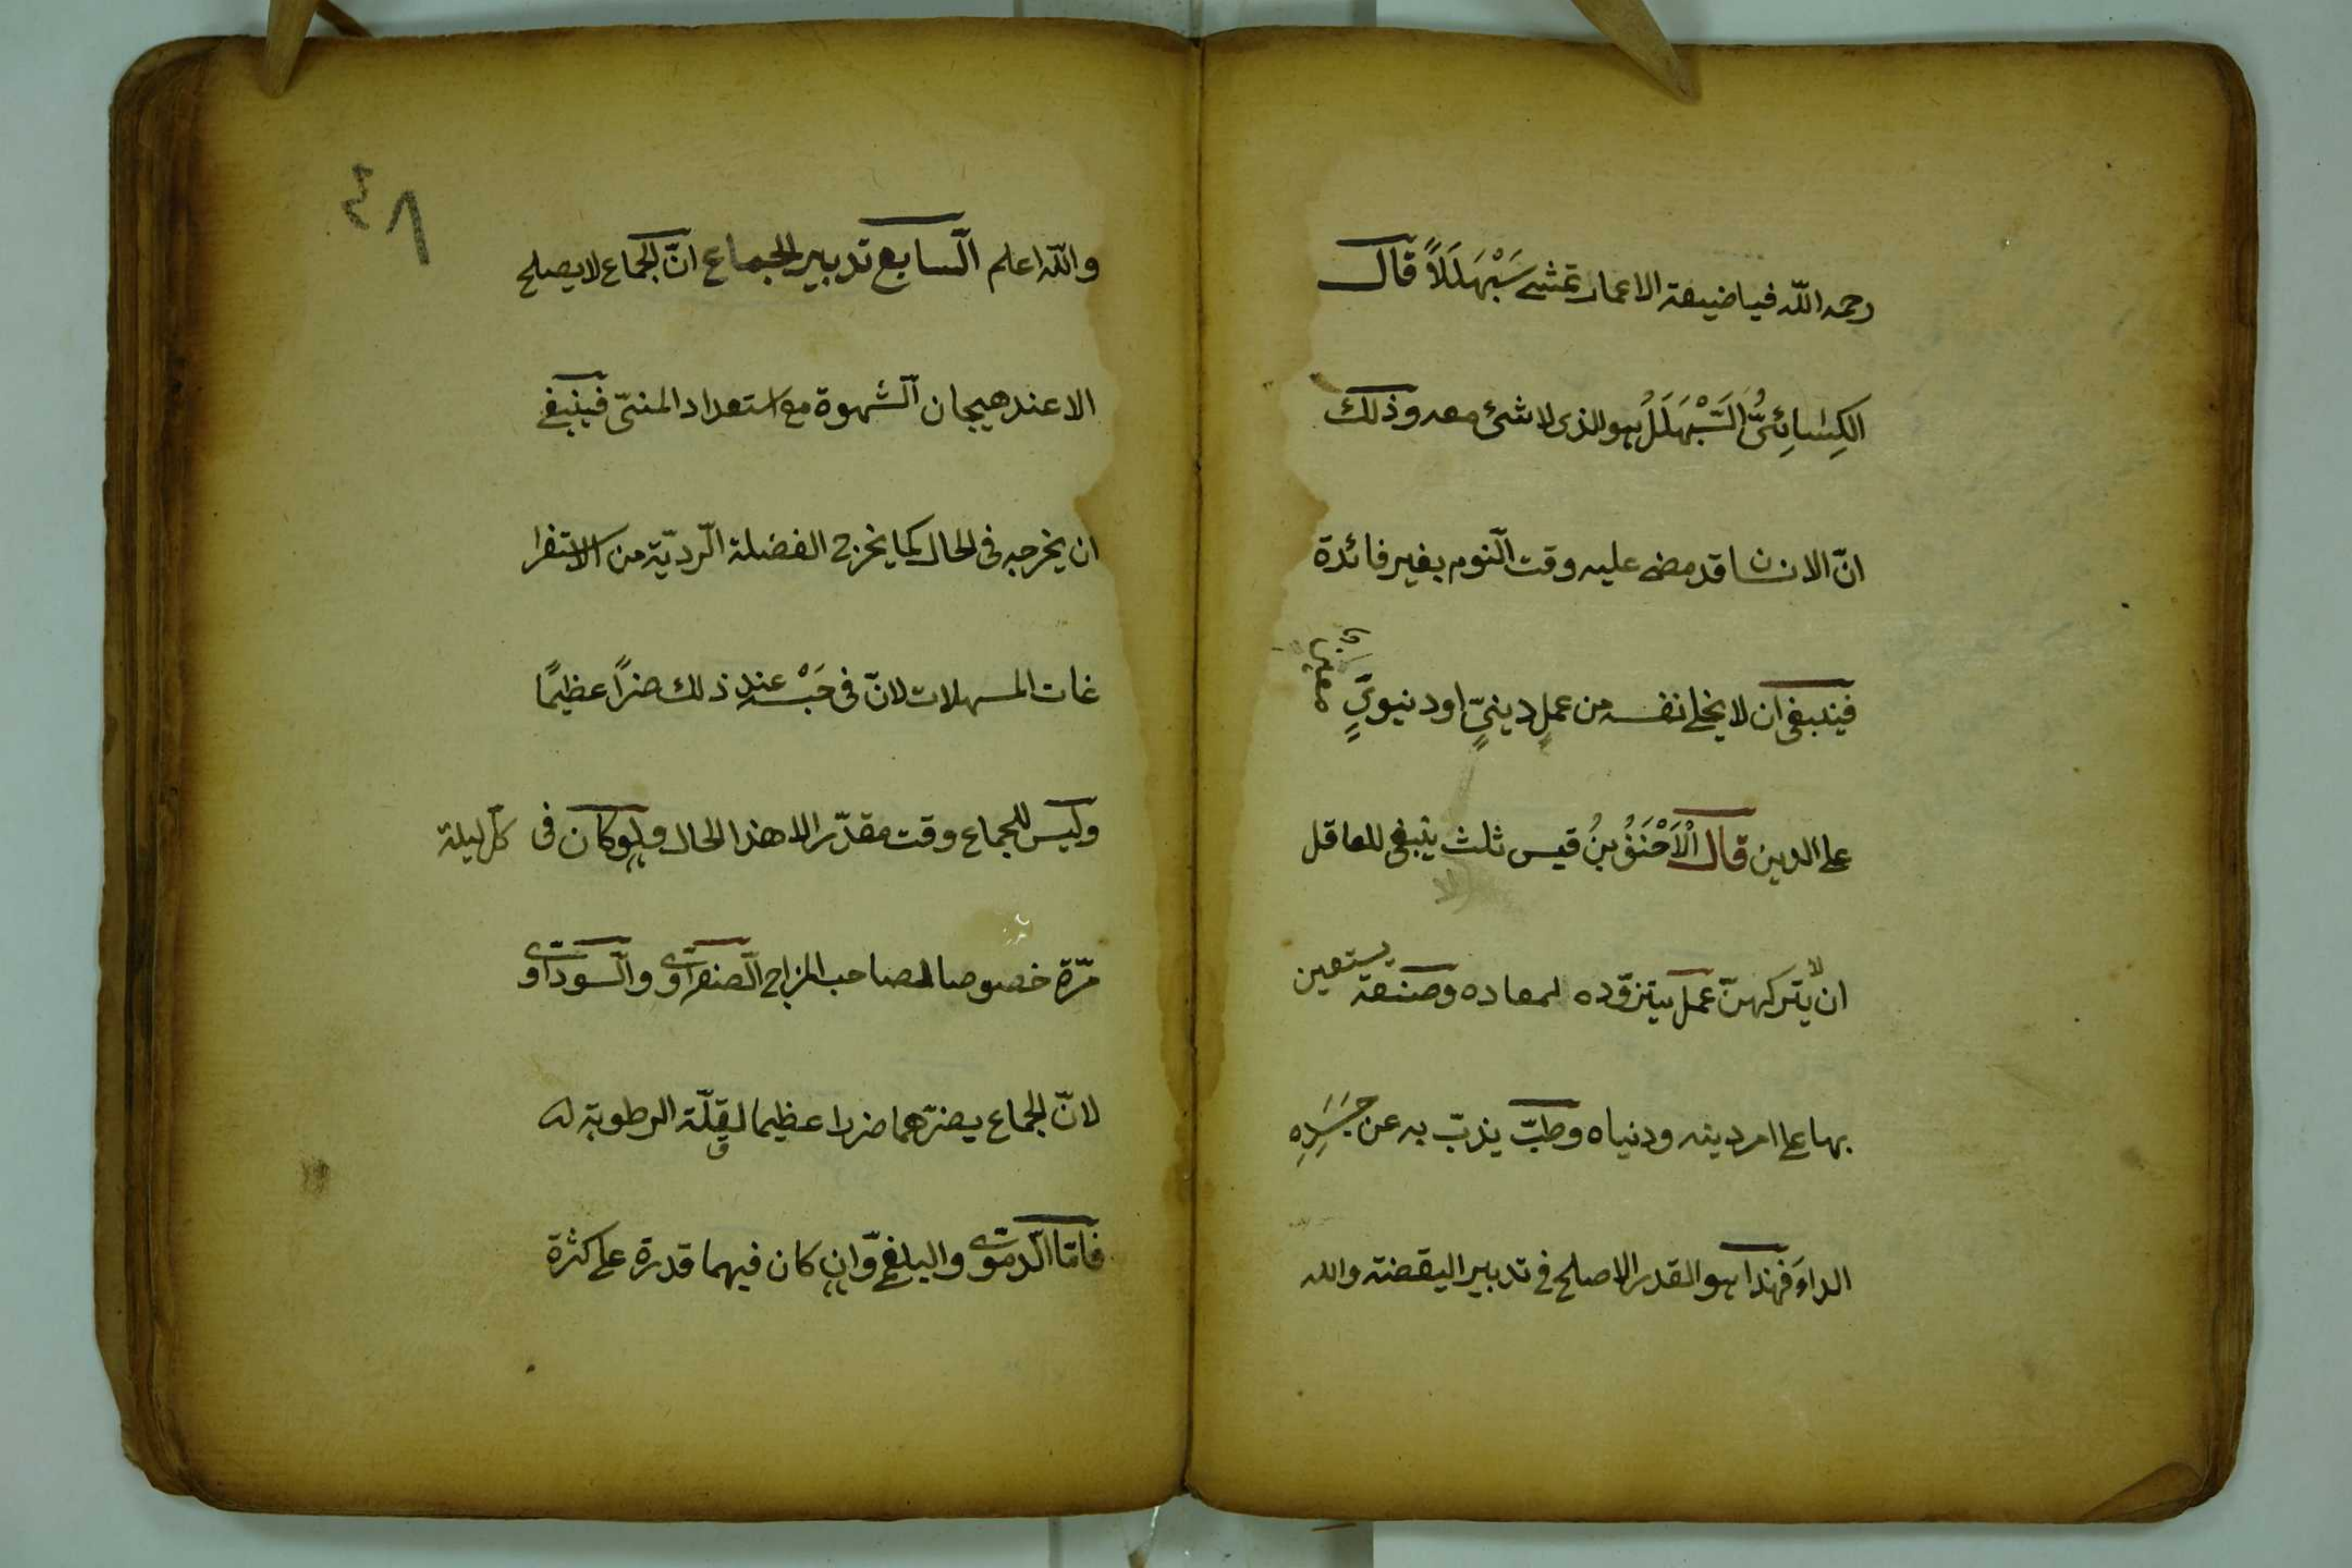 رحمه اللّه فياضيعة الاعمار تمشى سَبْهَلَلاً قال
الكِسَائِىُّ السَّبْهَلَلُ هو الذى لا شئ معه وذلك
انّ الانسان قد مضى عليه وقت النّوم بغير فائدة
فينبغى ان لا يخلى نفسه من عملٍ دينىٍّ او دنيوىٍّ
على الدين قال الْاَحْنَفُ بنُ قيس ثلث ينبغى للعاقل
ان لا يتركهنّ عمل يتزوّده لمعاده وصنعة يستعين
بها على امر دينه ودنياه وطبّ يذبّ به عن جَسَدِهِ
الداءَ فهذا هو القدر الاصلح فى تدبير اليقضة والله
٤٨
واللّه اعلم السّابع تدبير الجماع انّ الجماع لا يصلح
الا عند هيجان الشّهوة مع استعداد المنىّ فينبغى
ان يخرجه فى الحال كما يخرج الفضلة الرّديّة من الاستفرا
غات المسهلات لانّ فى حَبْسه عند ذلك ضرًا عظيمًا
وليس للجماع وقت مقدّر الا هذا الحال ولو كان فى كلّ ليلة
مرّة خصوصا لصاحب المزاج الصّفراوىّ والسّوداوىّ
لانّ الجماع يضرّهما ضررا عظيما لقلّة الرطوبة له
فامّا الدّموىّ والبلغمىّ وان كان فيهما قدرة على كثرة